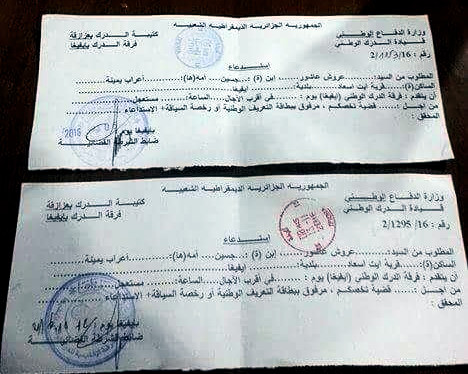 الجمهورية الجزائرية الديمقراطية الشعبية
وزارة الدفاع الوطني
كتيبة الدرك بعزازقة
قيادة الدرك الوطني
فرقة الدرك بإيفيغا
رقم : 16/
إستدعاء
المطلوب من السيد:.....عروش عاشور..... إبن (ة) :...حسين..... أمه(ها):........أعراب يمينة.....
الساكن(ة):........ قرية ايت اسعد........بلدية:........ ايفيغا
أن يتقدم : فرقة الدرك الوطني (إيفيغا) يوم :.... في أقرب الآجال....الساعة:..... مستعجل
من اجــل :... قضية تخصكــم ، مرفوق ببطاقة التعريف الوطنية أو رخصة السياقة+ الإستدعاء
المحقق :
بإيفيغا يوم
ضابط الشرطة القضائية
2016
الجمهورية الجزائرية الديمقراطية الشعبية
وزارة الدفاع الوطني
كتيبة الدرك بعزازقة
قيادة الدرك الوطني
فرقة الدرك بإيفيغا
رقم : 16/ 2/1295
إستدعاء
المطلوب من السيد:.....عروش عاشور..... إبن (ة) :...حسين.... أمه(ها):........أعراب يمينة.....
الساكن(ة):........ قرية ايت اسعد........بلدية:........ ايفيغا
أن يتقدم : فرقة الدرك الوطني (إيفيغا) يوم :.... في أقرب الآجال....الساعة:..... مستعمل
من اجــل :... قضية تخصكــم ، مرفوق ببطاقة التعريف الوطنية أو رخصة السياقة+ الإستدعاء
المحقق :
بإيفيغا يوم
ضابط الشرطة القضائية